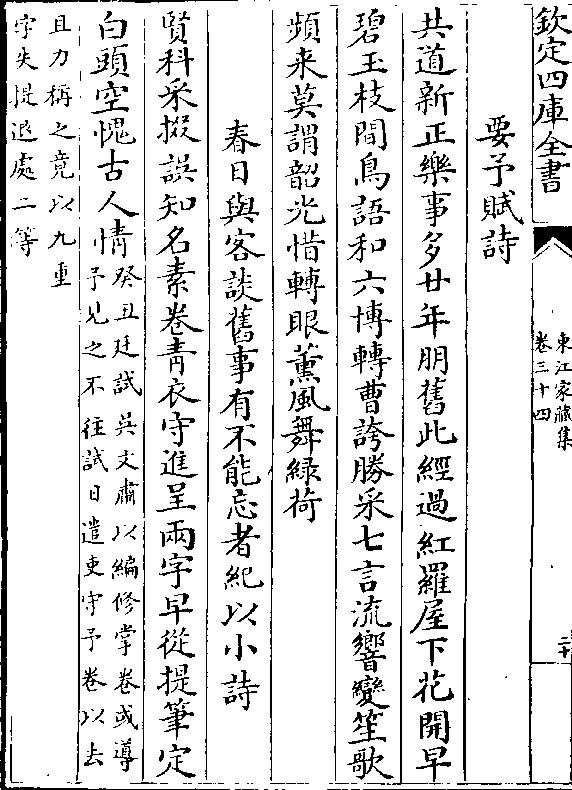 欽定四庫全書
東江家藏集
卷三十四
二十
要予賦詩
共道新正樂事多廿年朋舊此經過紅羅屋下花開早
碧玉枝間鳥語和六博轉曹誇勝采七言流響變笙歌
頻来莫謂韶光惜轉眼薰風舞緑荷
春日與客談舊事有不能忘者紀以小詩
賢科采掇誤知名素卷青衣守進呈兩字早從提筆定
白頭空愧古人情
癸丑廷試吳文肅以編修掌卷或導
予見之不往試日遣吏守予卷以去
且力稱之竟以九重
字失提退處二等